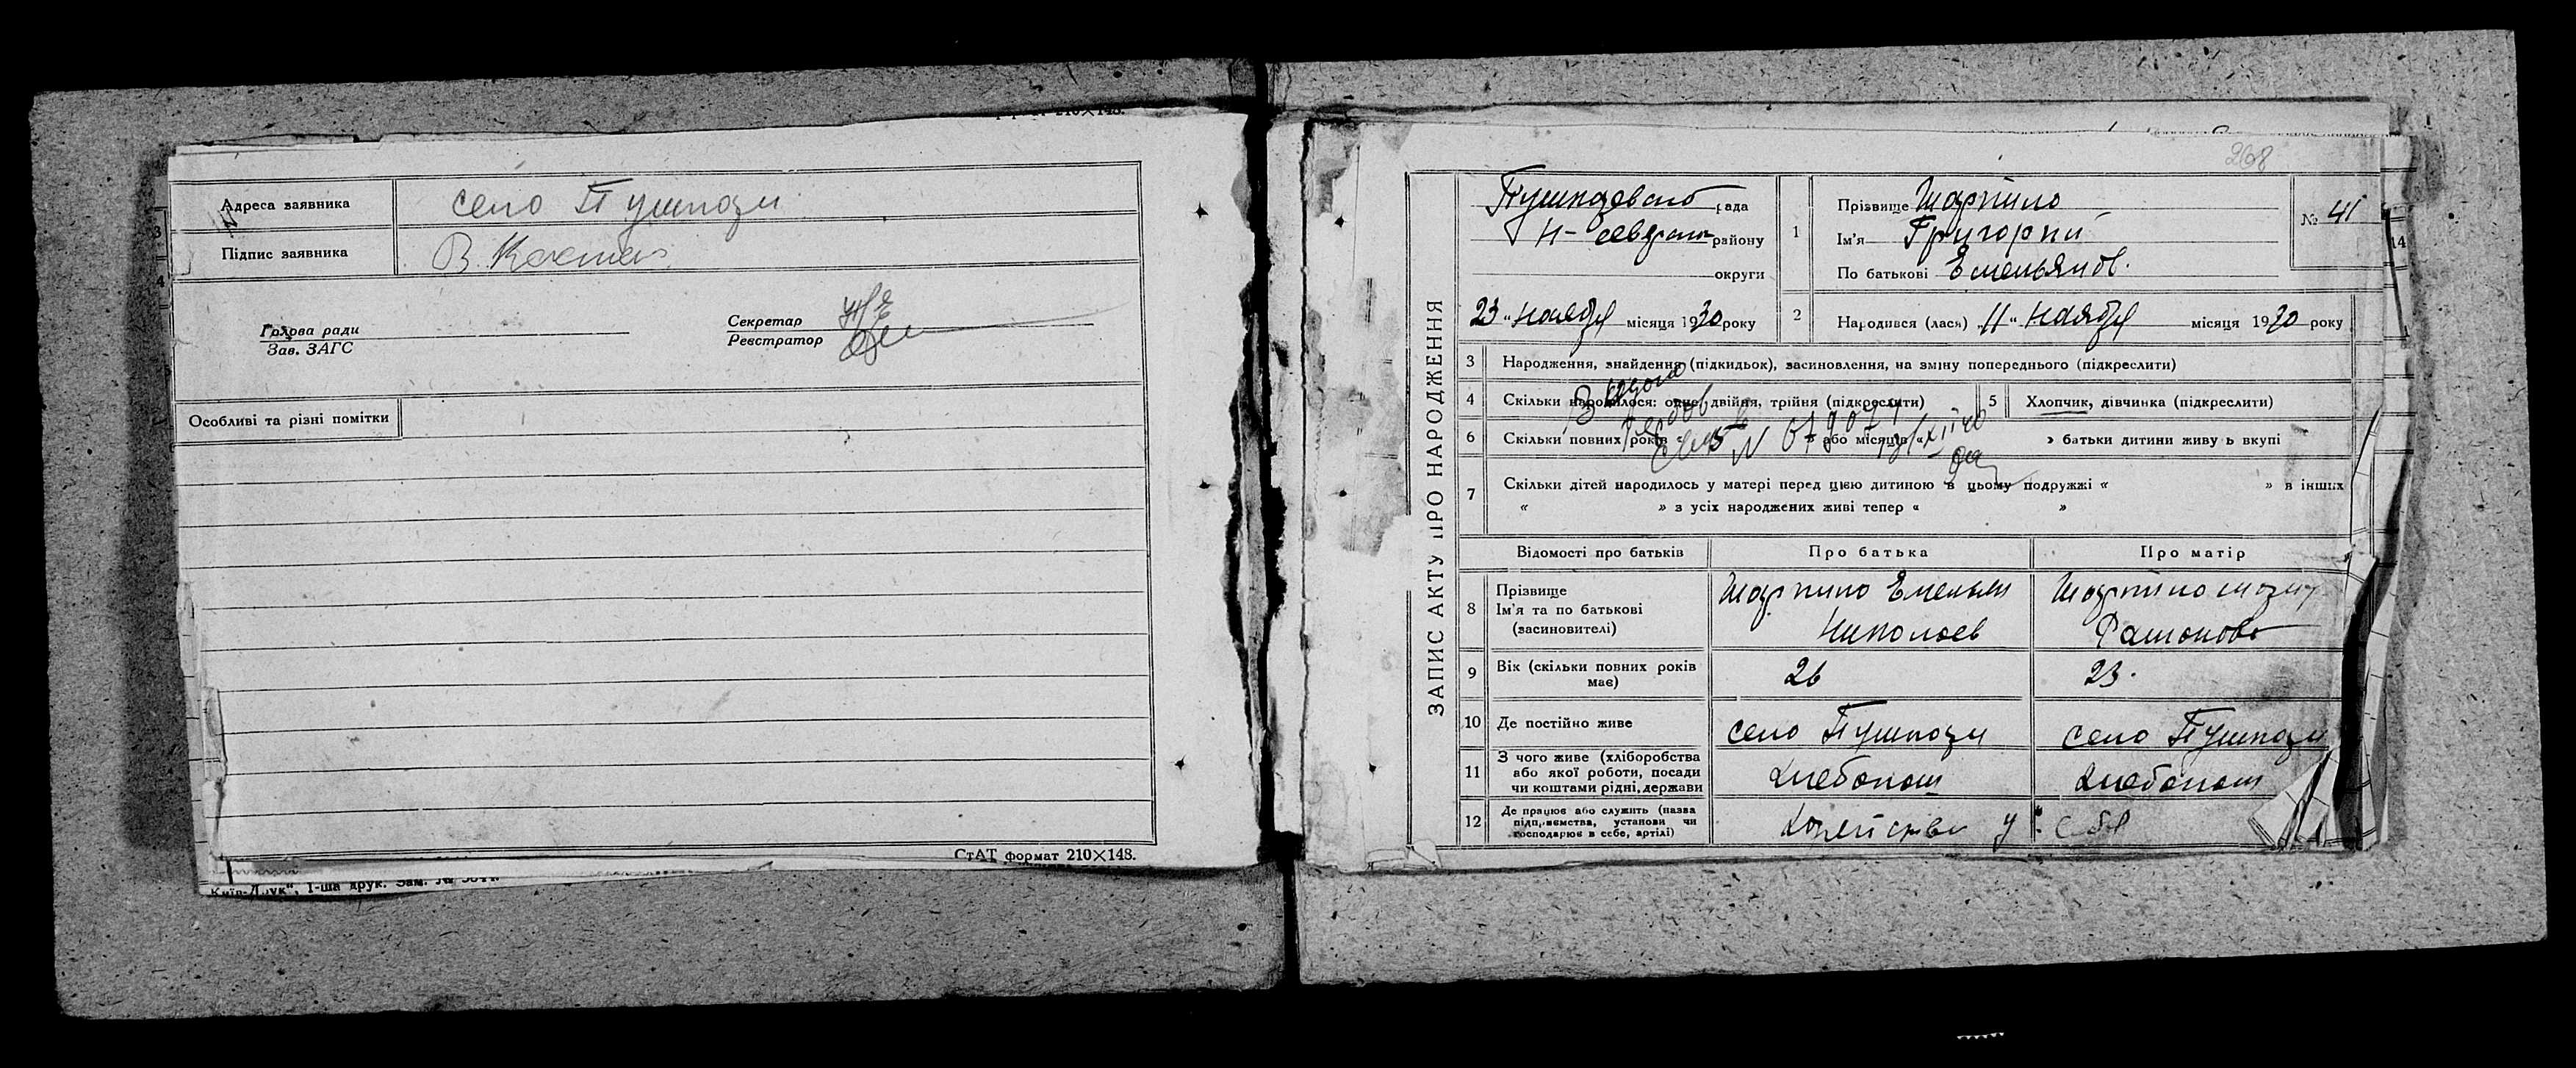 формат 210×148.
Адреса заявника
село Пушкари
Підпис заявника
В. Костю
Голова ради
Зав. ЗАГС
Секретар
Реєстратор
Особливі та різні помітки
СтАТ формат 210×148.
Київ-Друк", 1-ша друк. Зам. №
268
ЗАПИС АКТУ ПРО НАРОДЖЕННЯ
рада
Н-Северск району
округи
23 „ ноября місяця 1930 року
1
Прізвище Шарпило
Ім'я Григорий
По батькові Емельянов.
№ 41
2
Народився (лась) „11" ноября місяця 1930 року
3 Народження, знайдення (підкидьок), засиновлення, на зміну попереднього (підкреслити)
4 Скільки народилося: одно, двійня, трійня (підкреслити)
5 Хлопчик, дівчинка (підкреслити)
6 Скільки повних років « » або місяців « » батьки дитини живуть вкупі
7 Скільки дітей народилось у матері перед цією дитиною в цьому подружжі « » в інших
« » з усіх народжених живі тепер « »
Відомості про батьків
Про батька
Про матір
8 Прізвище
Ім'я та по батькові
(засиновителі)
Шарпило Емельян
Николаев
Шарпило
9 Вік (скільки повних років
має)
26
23.
10 Де постійно живе
село Пушкари
село Пушкари
11 З чого живе (хліборобства
або якої роботи, посади
чи коштами рідні, держави
хлебопаш
хлебопаш
12 Де працює або служить (назва
підприємства, установи чи
господарює в себе, артілі)
у себя